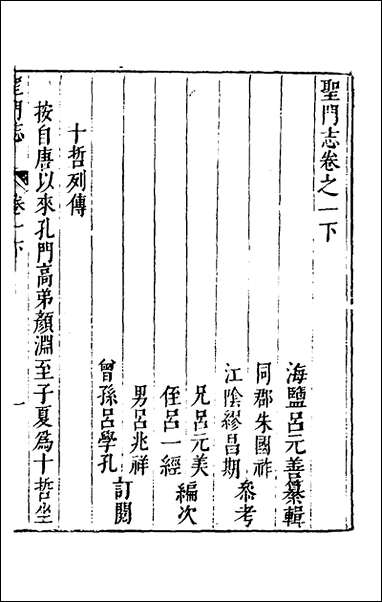 聖門志卷之一下
海鹽呂元善纂輯
同郡朱國祚
江陰繆昌期
參考
兄呂元美
侄呂一經
編次
男呂兆祥
曾孫呂學孔
訂閱
十哲列傳
按自唐以來孔門高弟顏淵至子夏爲十哲坐
聖門志
卷一下
一